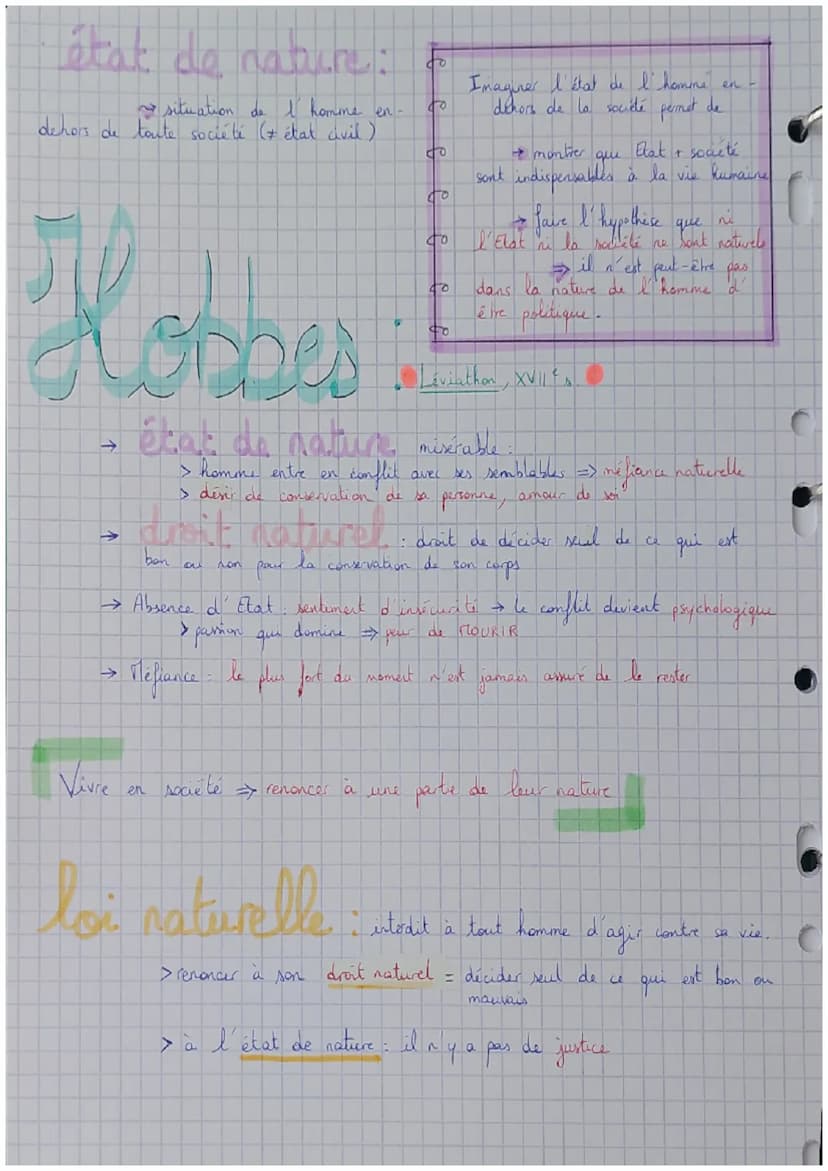 état de nature :
⇝ situation de l'homme en-
dehors de toute société (≠ état civil)
Imaginer l'état de l'homme en-
dehors de la société permet de
→ montrer que Etat + société
sont indispensables à la vie humaine
→ faire l'hypothèse que ni
l'Etat ni la société ne sont naturels
⇒ il n'est peut-être pas
dans la nature de l'homme d'
être politique.
Hobbes :
Léviathan, XVIIe s.
→ état de nature misérable :
> homme entre en conflit avec ses semblables ⇒ méfiance naturelle
> désir de conservation de sa personne, amour de soi
→ droit naturel : droit de décider seul de ce qui est
bon ou non pour la conservation de son corps
→ Absence d'Etat : sentiment d'insécurité → le conflit devient psychologique
> passion qui domine ⇒ peur de MOURIR
→ Méfiance : le plus fort du moment n'est jamais assuré de le rester
Vivre en société ⇒ renoncer à une partie de leur nature
loi naturelle : interdit à tout homme d'agir contre sa vie.
> renoncer à son droit naturel = décider seul de ce qui est bon ou
mauvais
> à l'état de nature : il n'y a pas de justice